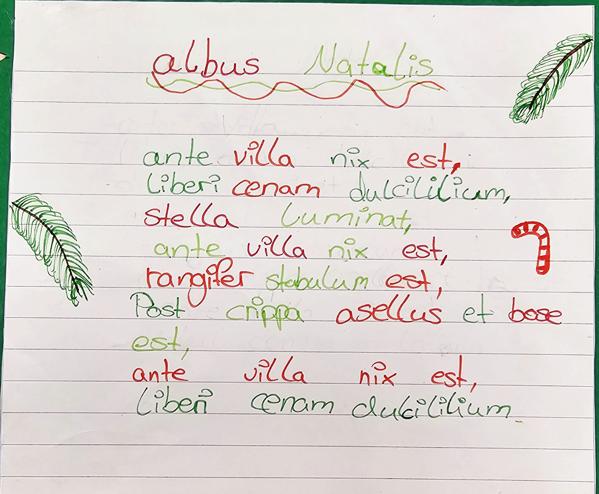 albus Natalis
ante villa nix est,
Liberi cenam dulcililium,
stella luminat,
ante villa nix est,
rangifer stabulum est,
Post crippa asellus et bose
est,
ante villa nix est,
liberi cenam dulcililium